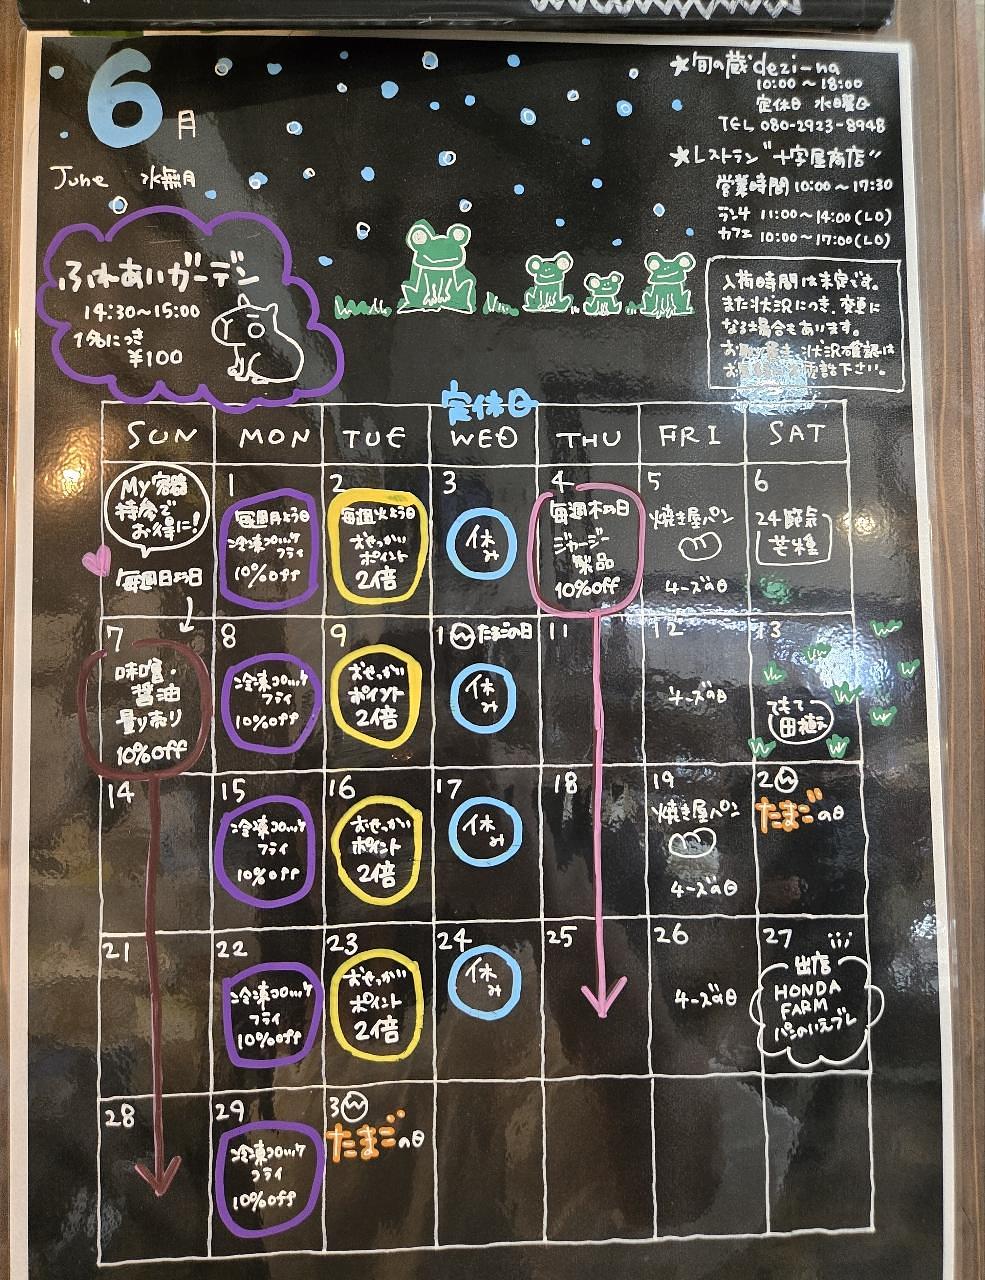 6月
June 水無月
★旬の蔵 dezi-na
10:00～18:00
定休日 水曜日
TEL 080-2923-8948
★レストラン"十字屋商店"
営業時間 10:00～17:30
ランチ 11:00～14:00(LO)
カフェ 10:00～17:00(LO)
ふれあいガーデン
14:30～15:00
1名につき
¥100
入荷時間は未定です。
また状況につき、変更に
なる場合もあります。
状況確認は
下さい。
定休日
SUN MON TUE WED THU FRI SAT
My容器
持参で
お得に!
毎週日よう日
1
毎週月よう日
冷凍コロッケ
フライ
10%off
2
毎週火よう日
おせっかい
ポイント
2倍
3
休み
4
毎週木よう日
ジャージー
製品
10%off
5
焼き屋パン
チーズの日
6
24節気
芒種
7
味噌・
醤油
量り売り
10%off
8
冷凍コロッケ
フライ
10%off
9
おせっかい
ポイント
2倍
10 たまごの日
休み
11
12
チーズの日
13
てもて
田植え
14
15
冷凍コロッケ
フライ
10%off
16
おせっかい
ポイント
2倍
17
休み
18
19
焼き屋パン
チーズの日
20
たまごの日
21
22
冷凍コロッケ
フライ
10%off
23
おせっかい
ポイント
2倍
24
休み
25
26
チーズの日
27
出店
HONDA
FARM
パンのいえブレ
28
29
冷凍コロッケ
フライ
10%off
30
たまごの日